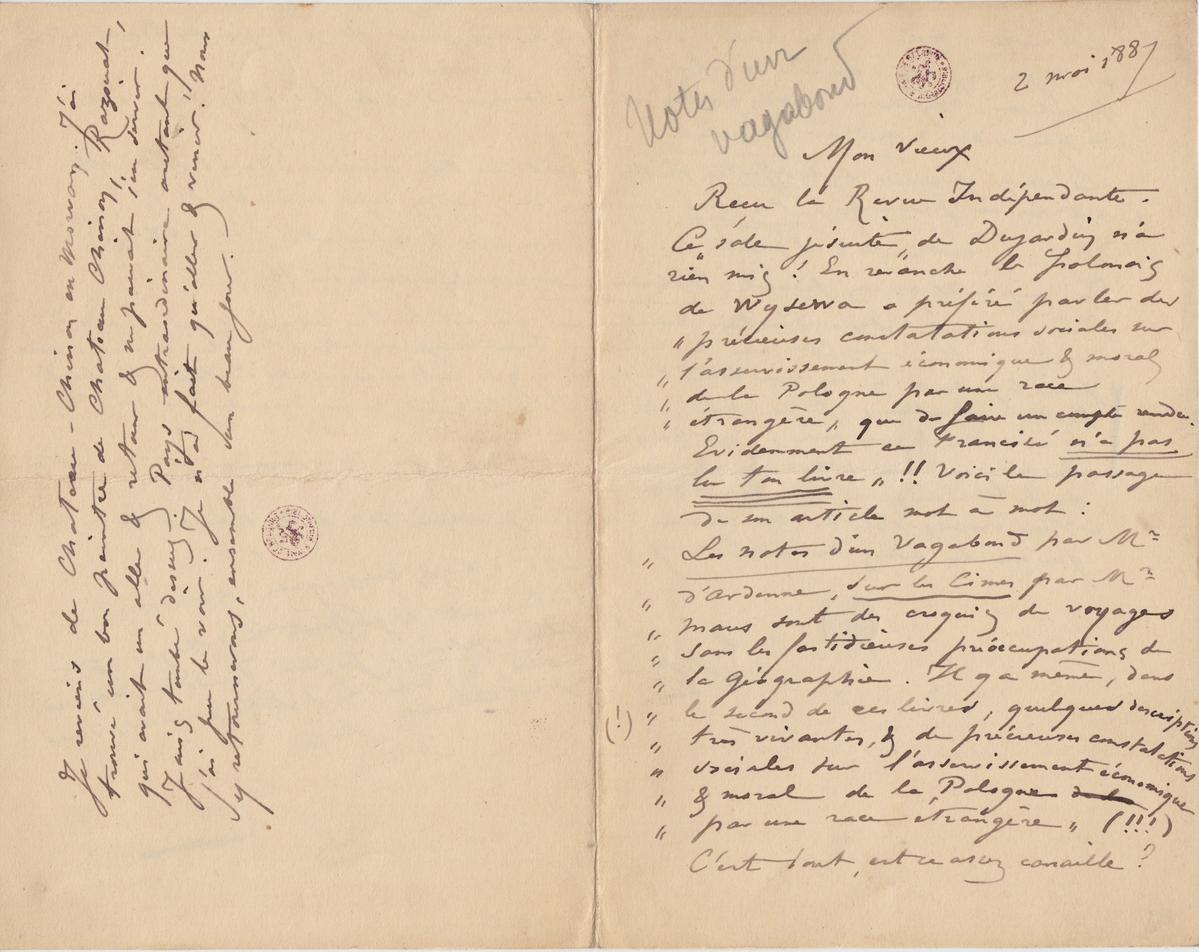 Notes d'un
vagabond
2 mai 1887
Mon vieux
Recu la Revue Indépendante.
Ce "sale jésuite" de Dujardin n'a
rien mis ! En revanche le polonais
de Wyzewa a préféré parler des
" précieuses constatations sociales sur
" l'asservissement économique & moral
" de la Pologne par une race
" étrangère " que de faire un compte rendu.
Evidemment ce Francisé n'a pas
lu ton livre " !! Voici le passage
de son article mot à mot :
" Les notes d'un Vagabond par Mr
" d'Ardenne, Sur les Cimes par Mr
" Maus sont des croquis de voyages
" sans les fastidieuses préoccupations de
" la Géographie. Il y a même, dans
(!) " le second de ces livres, quelques descriptions
" très vivantes, & de précieuses constatations
" sociales sur l'asservissement économique
" & moral de la Pologne
" par une race étrangère " (!!!)
C'est tout, est ce assez canaille ?
Je reviens de Chateau-Chinon en Morvan. J'ai
trouvé un bon peintre de Chateau Chinon,
qui avait un aller & retour & ne pouvait s'en servir.
J'ai tombé dessus. Pays extraordinaire autant que
j'ai pu le voir. Je n'ai fait qu'aller & venir. Nous
y retournerons, ensemble un beau jour.